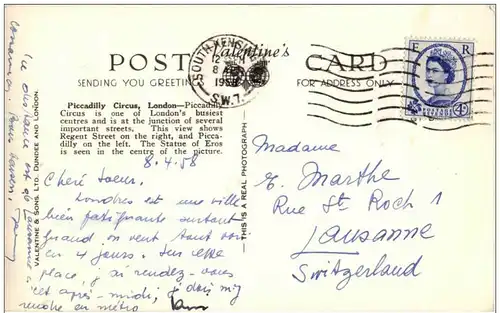 POST CARD
Valentine's
SENDING YOU GREETING
FOR ADDRESS ONLY
SOUTH KENS
8
1958
S.W.7.
E R
4D
Piccadilly Circus, London—Piccadilly
Circus is one of London's busiest
centres and is at the junction of several
important streets. This view shows
Regent Street on the right, and Picca-
dilly on the left. The Statue of Eros
is seen in the centre of the picture.
8.4.58
Chère soeur.
Londres est une ville
bien fatiguante surtout
quand on veut tout voir
en 4 jours. Sur cette
place, j'ai rendez-vous
cet après-midi, je dois m'y
rendre en métro
VALENTINE & SONS, LTD. DUNDEE AND LONDON.
THIS IS A REAL PHOTOGRAPH
Madame
E. Marthe
Rue St Roch 1
Lausanne
Switzerland